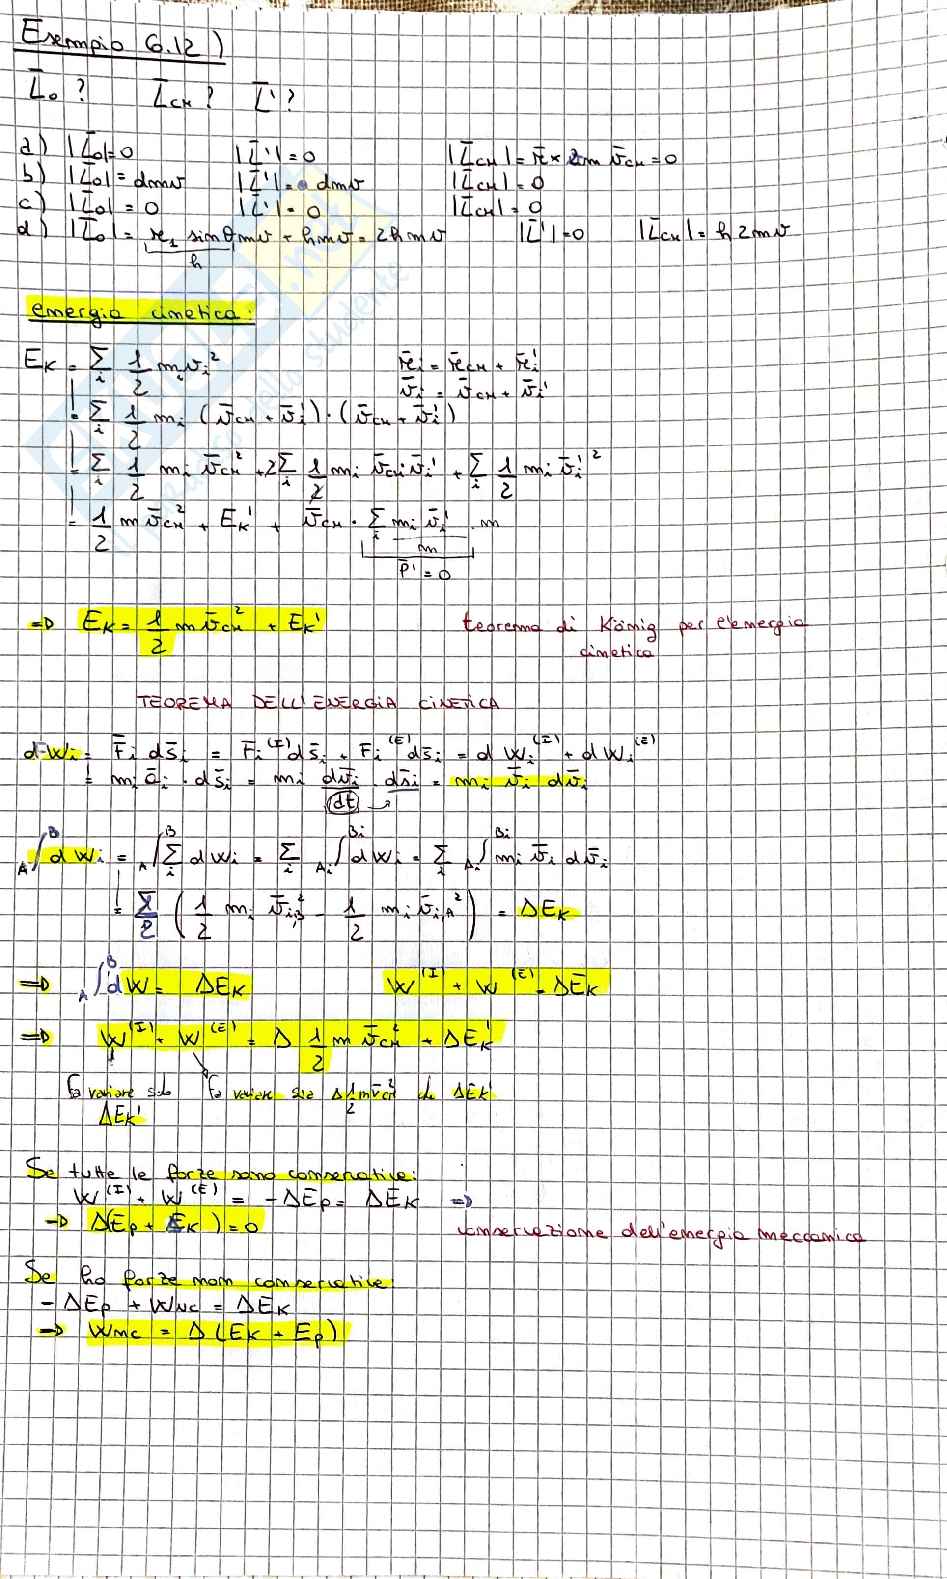 Esempio 6.12)
L̄o ? L̄CM ? L̄' ?
a) |L̄o|=0 |L̄'|=0 |L̄CM|= r̄ × 2m v̄CM = 0
b) |L̄o|= dmv |L̄'|= dmv |L̄CM|=0
c) |L̄o|=0 |L̄'|=0 |L̄CM|=0
d) |L̄o|= r₁ sinθ mv + hmv = 2hmv |L̄'|=0 |L̄CM|= h2mv
h
energia cinetica:
EK = Σi 1/2 mi vi² r̄i = r̄CM + r̄i'
v̄i = v̄CM + v̄i'
= Σi 1/2 mi (v̄CM + v̄i')·(v̄CM + v̄i')
= Σi 1/2 mi v̄CM² + 2Σi 1/2 mi v̄CM v̄i' + Σi 1/2 mi v̄i'²
= 1/2 m v̄CM² + EK' + v̄CM · Σi mi v̄i' / m · m
P̄' = 0
=> EK = 1/2 m v̄CM² + EK' teorema di König per l'energia
cinetica
TEOREMA DELL'ENERGIA CINETICA
dWi = F̄i ds̄i = F̄i^(I) ds̄i + F̄i^(E) ds̄i = dWi^(I) + dWi^(E)
= mi āi · ds̄i = mi dv̄i/dt ds̄i = mi v̄i dv̄i
A∫B dWi = A∫B Σi dWi = Σi Ai∫Bi dWi = Σi Ai∫Bi mi v̄i dv̄i
= Σ ( 1/2 mi v̄i,B² - 1/2 mi v̄i,A² ) = ΔEK
=> A∫B dW = ΔEK W^(I) + W^(E) = ΔEK
=> W^(I) + W^(E) = Δ 1/2 m v̄CM² + ΔEK'
Fa variare solo Fa variare sia Δ 1/2 m v̄CM² che ΔEK'
ΔEK'
Se tutte le forze sono conservative:
W^(I) + W^(E) = -ΔEp = ΔEK =>
=> Δ(Ep + EK) = 0 conservazione dell'energia meccanica
Se ho forze non conservative:
-ΔEp + WNC = ΔEK
=> Wnc = Δ(EK + Ep)